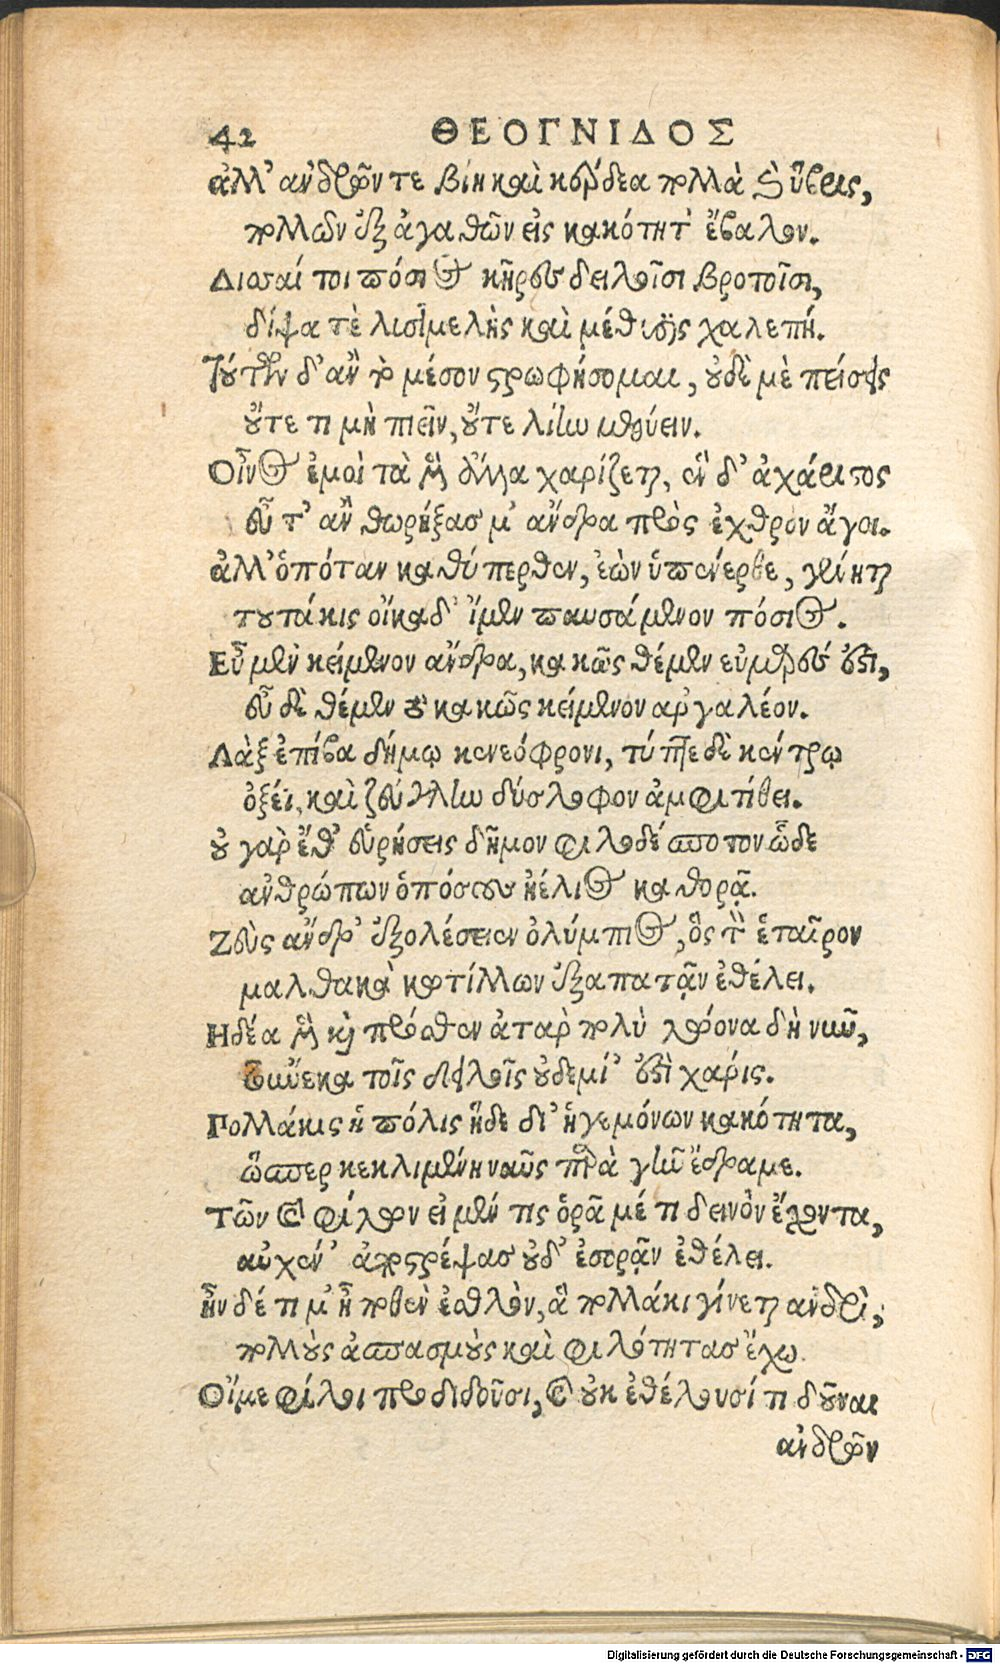 42 ΘΕΟΓΝΙΔΟΣ
ἀλλ' ἀνδρῶν τε βίη καὶ κέρδεα πολλὰ καὶ ὕβρις,
πολλῶν ἐξ ἀγαθῶν εἰς κακότητ' ἔβαλον.
Δισσαί τοι πόσιος κῆρες δειλοῖσι βροτοῖσι,
δίψα τὲ λυσιμελὴς καὶ μέθυσις χαλεπή.
Τούτων δ' ἂν τὸ μέσον στρωφήσομαι, οὐδὲ μὲ πείσεις
οὔτε τι μὴ πιεῖν, οὔτε λίην μεθύειν.
Οἶνος ἐμοὶ τὰ μὲν ἄλλα χαρίζεται, ἓν δ' ἀχάριστος
εὖ τ' ἂν θωρήξας μ' ἄνδρα πρὸς ἐχθρὸν ἄγοι.
ἀλλ' ὁπόταν καθύπερθεν, ἐὼν ὑπένερθε, γένηται
τουτάκις οἴκαδ' ἴμεν παυσάμενον πόσιος.
Εὖ μὲν κείμενον ἄνδρα, κακῶς θέμεν εὐμαρές ἐστι,
εὖ δὲ θέμεν τὸ κακῶς κείμενον ἀργαλέον.
Λὰξ ἐπίβα δήμῳ κενεόφρονι, τύπτε δὲ κέντρῳ
ὀξέϊ, καὶ ζεύγλην δύσλοφον ἀμφιτίθει.
οὐ γὰρ ἔθ' εὑρήσεις δῆμον φιλοδέσποτον ὧδε
ἀνθρώπων ὁπόσους ἠέλιος καθορᾷ.
Ζεὺς ἄνδρ' ἐξολέσειεν ὀλύμπιος, ὃς τὸν ἑταῖρον
μαλθακὰ κωτίλλων ἐξαπατᾷν ἐθέλει.
Ηδέα μὲν καὶ πρόσθεν ἀτὰρ πολὺ λώονα δὴ νῦν,
τοὔνεκα τοῖς δειλοῖς οὐδεμί' ἐστὶ χάρις.
Πολλάκις ἡ πόλις ἥδε δι' ἡγεμόνων κακότητα,
ὥσπερ κεκλιμένη ναῦς παρὰ γῆν ἔδραμε.
Τῶν δὲ φίλων εἰ μέν τις ὁρᾷ μέ τι δεινὸν ἔχοντα,
αὐχέν' ἀποστρέψας οὐδ' ἐσορᾷν ἐθέλει.
ἢν δέ τι μ' ἦ ποθεν ἐσθλὸν, ἃ πολλάκι γίνεται ἀνδρὶ,
πολλοὺς ἀσπασμοὺς καὶ φιλότητας ἔχω.
Οἵ με φίλοι προδιδοῦσι, καὶ οὐκ ἐθέλουσί τι δοῦναι
ἀνδρῶν
Digitalisierung gefördert durch die Deutsche Forschungsgemeinschaft - DFG